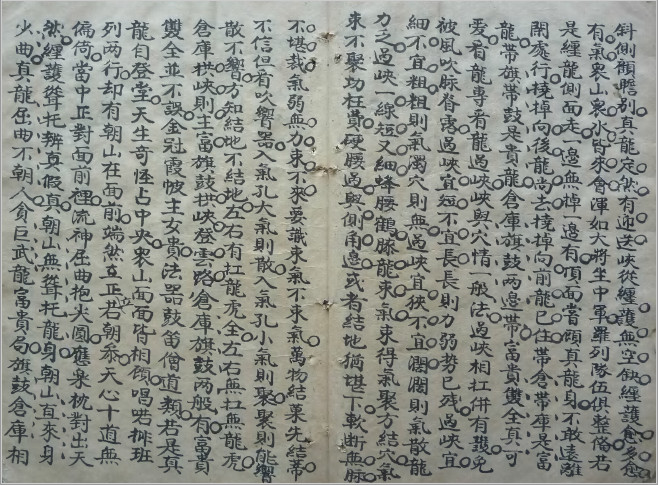 斜側顧瞻別真龍定然有迎送峽從纏護無空缺纏護愈多愈
有氣衆山衆水皆來會渾如大將坐中軍羅列隊伍俱整脩若
是纏龍側面走一邊無棹一邊有頂面當顧真龍身不敢遠離
閑處行橈棹向後龍尚去橈棹向前龍已住帶倉帶庫是富
龍帶旗帶鼓是貴龍倉庫旗鼓兩邊帶富貴雙全真可
愛看龍專看龍過峽峽與穴情一般法過峽相扛併有護免
被風吹脉脊露過峽宜短不宜長長則力弱勢已殘過峽宜
細不宜粗粗則氣濁穴則無過峽宜狹不宜濶濶則氣散龍
力乏過峽一線短又細蜂腰鶴膝龍束氣束得氣聚方結穴氣
束不聚功枉費硬腰過與側角邊或者結地猶堪下軟斷無脉
不堪裁氣弱無力束不來要識束氣不束氣萬物結菓先結蒂
不信但看吹響器入氣孔大氣則散入氣孔小氣則聚聚則能響
散不響方知結地不結地左右有扛龍虎全左右無扛無龍虎
倉庫拱峽則主富旗鼓拱峽登雲路倉庫旗鼓两般有富貴
雙全並不誤金冠霞帔主女貴法器鼓笛僧道類若是真
龍自登堂天生奇怪占中央衆山面面皆相顧唱喏排班
列两行却有朝山在面前端然立正若朝叅天心十道無
偏倚當中正對面前裡流神屈曲抱尖圓應樂枕對出天
然纏護聳托辨真假真朝山無聳托龍身朝山直來身
少曲真龍屈曲不朝人貪巨武龍富貴局旗鼓倉庫相